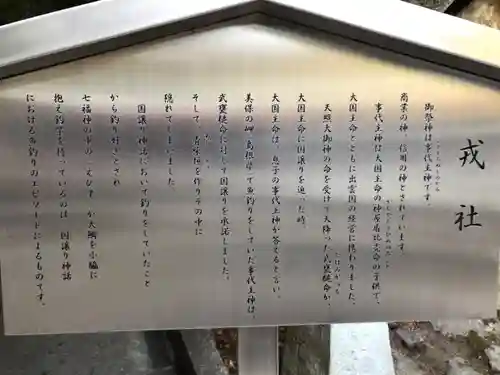 戎社
御祭神は事代主神です。
商業の神、信用の神とされています。
事代主神は大国主命の神屋盾比売命の子供で、
大国主命とともに出雲国の経営に携わりました。
天照大御神の命を受けて天降った武甕槌命が、
大国主命に国譲りを迫った時、
大国主命は、息子の事代主神が答えると言い、
美保の岬 島根県 で魚釣りをしていた事代主神は、
武甕槌命に対して国譲りを承諾しました。
そして、青柴垣を作りその中に
隠れてしまいました。
国譲り神話において釣りをしていたこと
から釣り好きとされ、
七福神の中の えびす が大鯛を小脇に
抱え釣竿を持っているのは、国譲り神話
における魚釣りのエピソードによるものです。